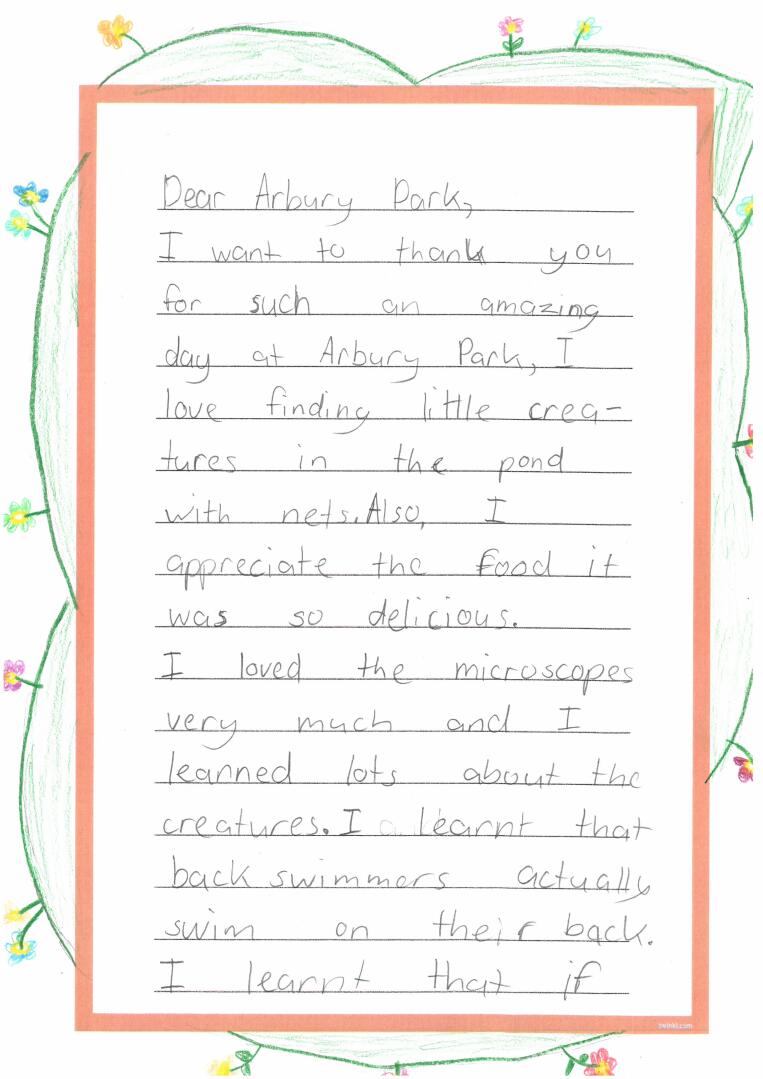 Dear Arbury Park,
I want to thank you
for such an amazing
day at Arbury Park, I
love finding little crea-
tures in the pond
with nets. Also, I
appreciate the food it
was so delicious.
I loved the microscopes
very much and I
learned lots about the
creatures. I learnt that
back swimmers actually
swim on their back.
I learnt that if
twinkl.com